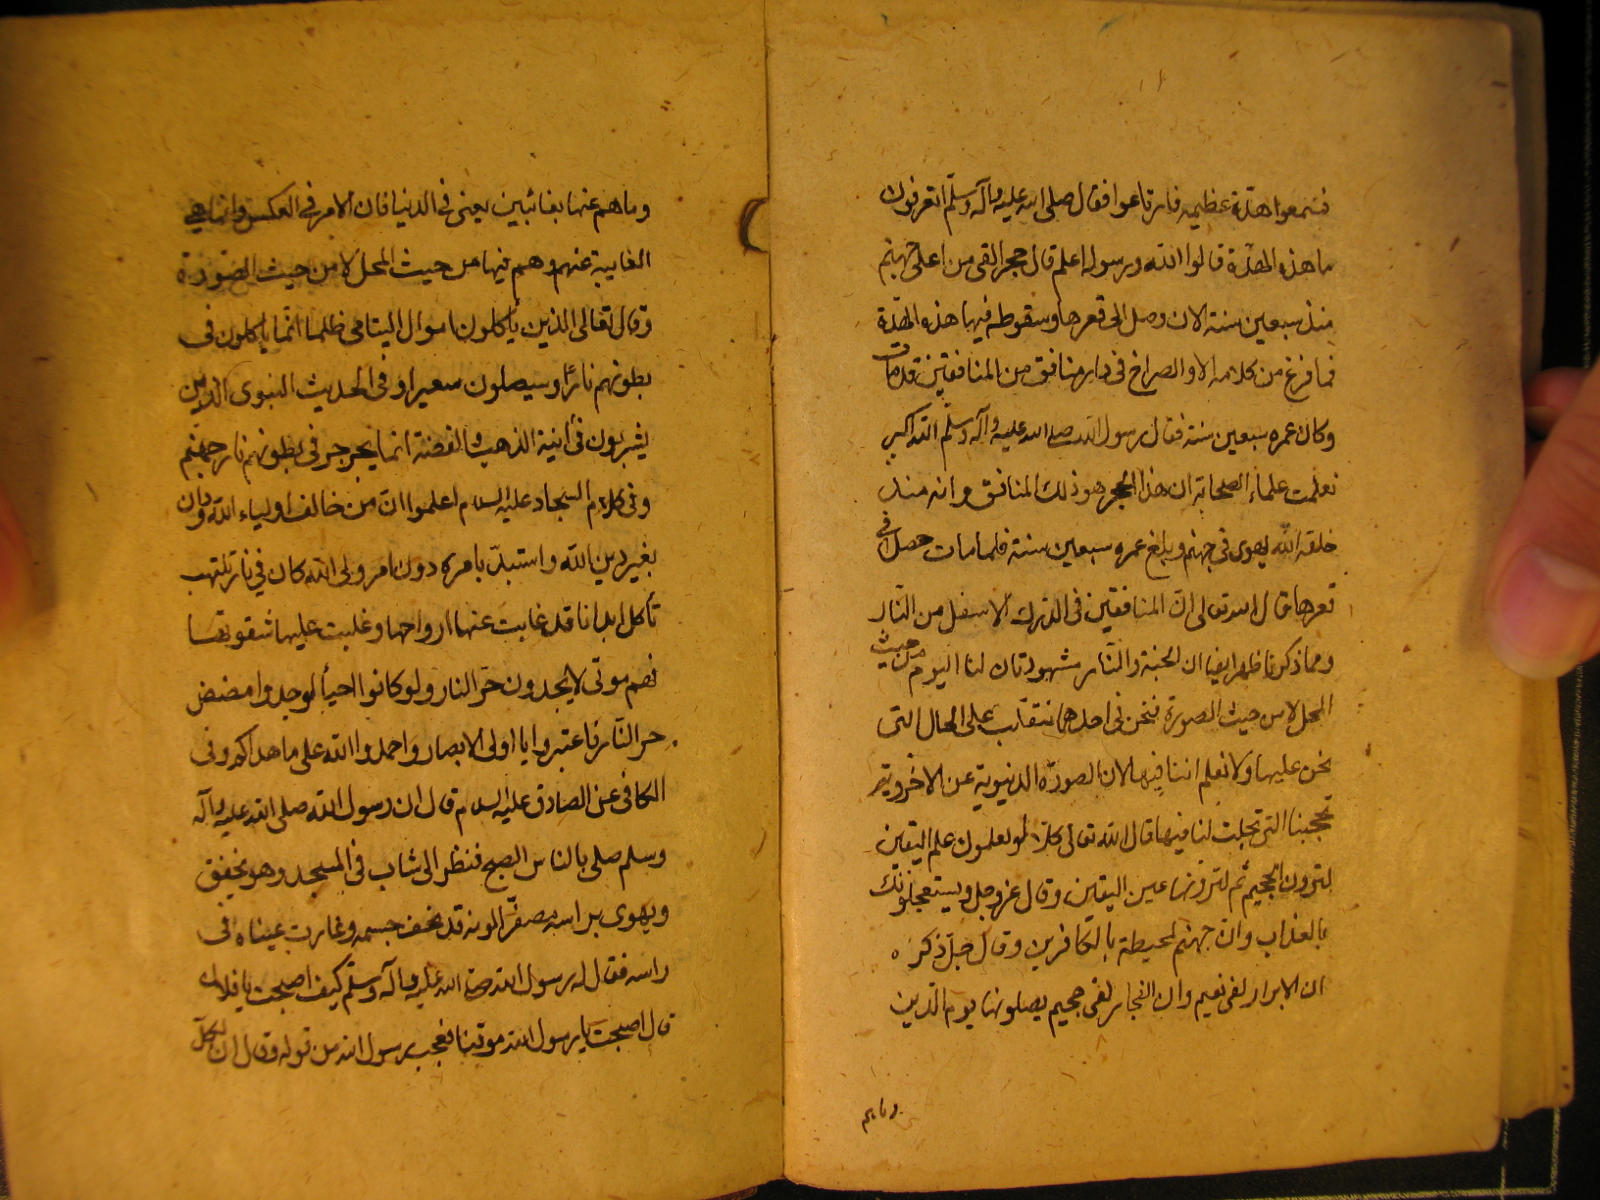 فسمعوا هدّة عظيمه فارتاعوا فقال صلى الله عليه وآله وسلّم اتعرفون
ما هذه الهدّة قالوا الله ورسوله اعلم قال حجر القى من اعلى جهنم
منذ سبعين سنته الان وصل الى قعرها وسقوطه فيها هذه الهدّة
فما فرغ من كلامه الا والصراخ فى دار منافق من المنافقين قد مات
وكان عمره سبعين سنته فقال رسول الله صلى الله عليه وآله وسلّم الله اكبر
فعلمت علماء الصحابة ان هذا الحجر هو ذلك المنافق وانه منذ
خلقه الله يهوى فى جهنم وبلغ عمره سبعين سنة فلما مات حصل فى
قعرها قال الله تعالى انّ المنافقين فى الدرك الاسفل من النّار
ومما ذكرنا ظهر ايضا ان الجنة والنّار مشهودتان لنا اليوم من حيث
المحل لا من حيث الصورة فنحن فى احدهما نتقلب على الحال التى
نحن عليها ولا نعلم اننا فيها لان الصورّة الدنيوية عن الاخروية
تحجبنا التى تجلت لنا فيها قال الله تعالى كلّا لو تعلمون علم اليقين
لترون الجحيم ثم لترونها عين اليقين وقال عز وجل ويستعجلونك
بالعذاب وان جهنّم لمحيطة بالكافرين وقال جلّ ذكره
ان الابرار لفى نعيم وان الفجار لفى جحيم يصلونها يوم الدّين
وما هم
وما هم عنها بغائبين يعنى فى الدنيا فان الامر فى العكس وانما هى
الغايبة عنهم وهم فيها من حيث المحل لا من حيث الصورة
وقال تعالى الذين يأكلون اموال اليتامى ظلما انّما يأكلون فى
بطونهم نارًا وسيصلون سعيرا وفى الحديث النبوى الذين
يشربون فى أنية الذهب والفضة انما يجرجر فى بطونهم نار جهنّم
وفى كلام السجاد عليه السلام اعلموا انّ من خالف اولياء الله ودان
بغير دين الله واستبدّ بامره دون امر ولى الله كان فى نار تلتهب
تأكل ابدانا قد غابت عنها ارواحها وغلبت عليها شقوتها
فهم موتى لا يجدون حرّ النار ولو كانوا احيأ لوجدوا مضض
حر النّار فاعتبروا يا اولى الابصار واحمدوا الله على ما هداكم وفى
الكافى عن الصادق عليه السلام قال ان رسول الله صلى الله عليه وآله
وسلم صلى بالناس الصبح فنظر الى شاب فى المسجد وهو يخفق
ويهوى براسه مصفرّا لونه قد نحف جسمه وغارت عيناه فى
راسه فقال له رسول الله صلى الله عليه وآله وسلّم كيف اصبحت يا فلان
قال اصبحت يا رسول الله موقنا فعجب رسول الله من قوله وقال ان لكلّ